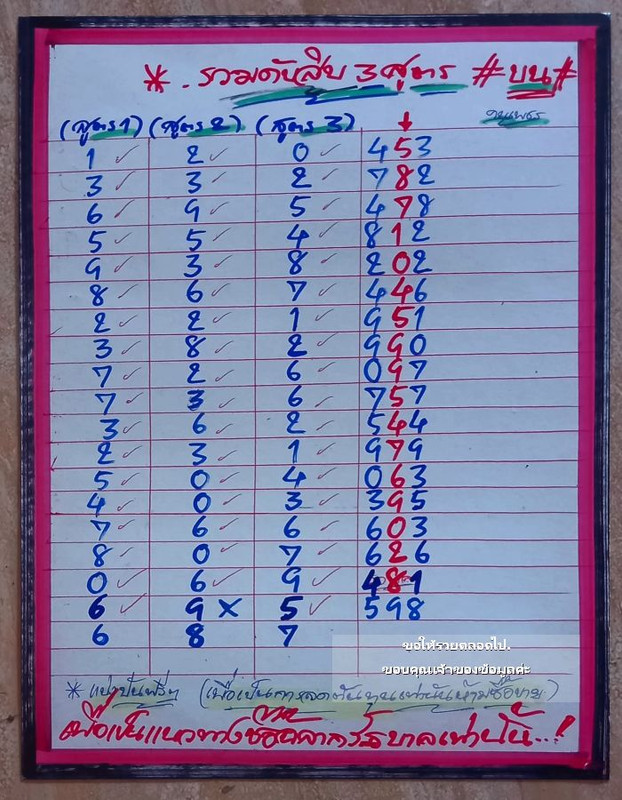 * . รวมดับสิบ 3 สูตร #บน#
(สูตร1) (สูตร2) (สูตร 3)
1 ✓ 2 ✓ 0 ✓ 453
3 ✓ 3 ✓ 2 ✓ 782
6 ✓ 9 ✓ 5 ✓ 478
5 ✓ 5 ✓ 4 ✓ 812
9 ✓ 3 ✓ 8 ✓ 202
8 ✓ 6 ✓ 7 ✓ 446
2 ✓ 2 ✓ 1 ✓ 951
3 ✓ 8 ✓ 2 ✓ 990
7 ✓ 2 ✓ 6 ✓ 097
7 ✓ 3 ✓ 6 ✓ 757
3 ✓ 6 ✓ 2 ✓ 544
2 ✓ 3 ✓ 1 ✓ 979
5 ✓ 0 ✓ 4 ✓ 063
4 ✓ 0 ✓ 3 ✓ 395
7 ✓ 6 ✓ 6 ✓ 603
8 ✓ 0 ✓ 7 ✓ 626
0 ✓ 6 ✓ 9 ✓ 481
6 ✓ 9 X 5 ✓ 598
6 8 7
ขอให้รวยตลอดไป.
ขอบคุณเจ้าของข้อมูลค่ะ
* แบ่งปันฟรีๆ (เพื่อเป็นการลดต้นทุนเท่านั้นห้ามซื้อขาย)
เพื่อเป็นแนวทางซื้อสลากรัฐบาลเท่านั้น..!